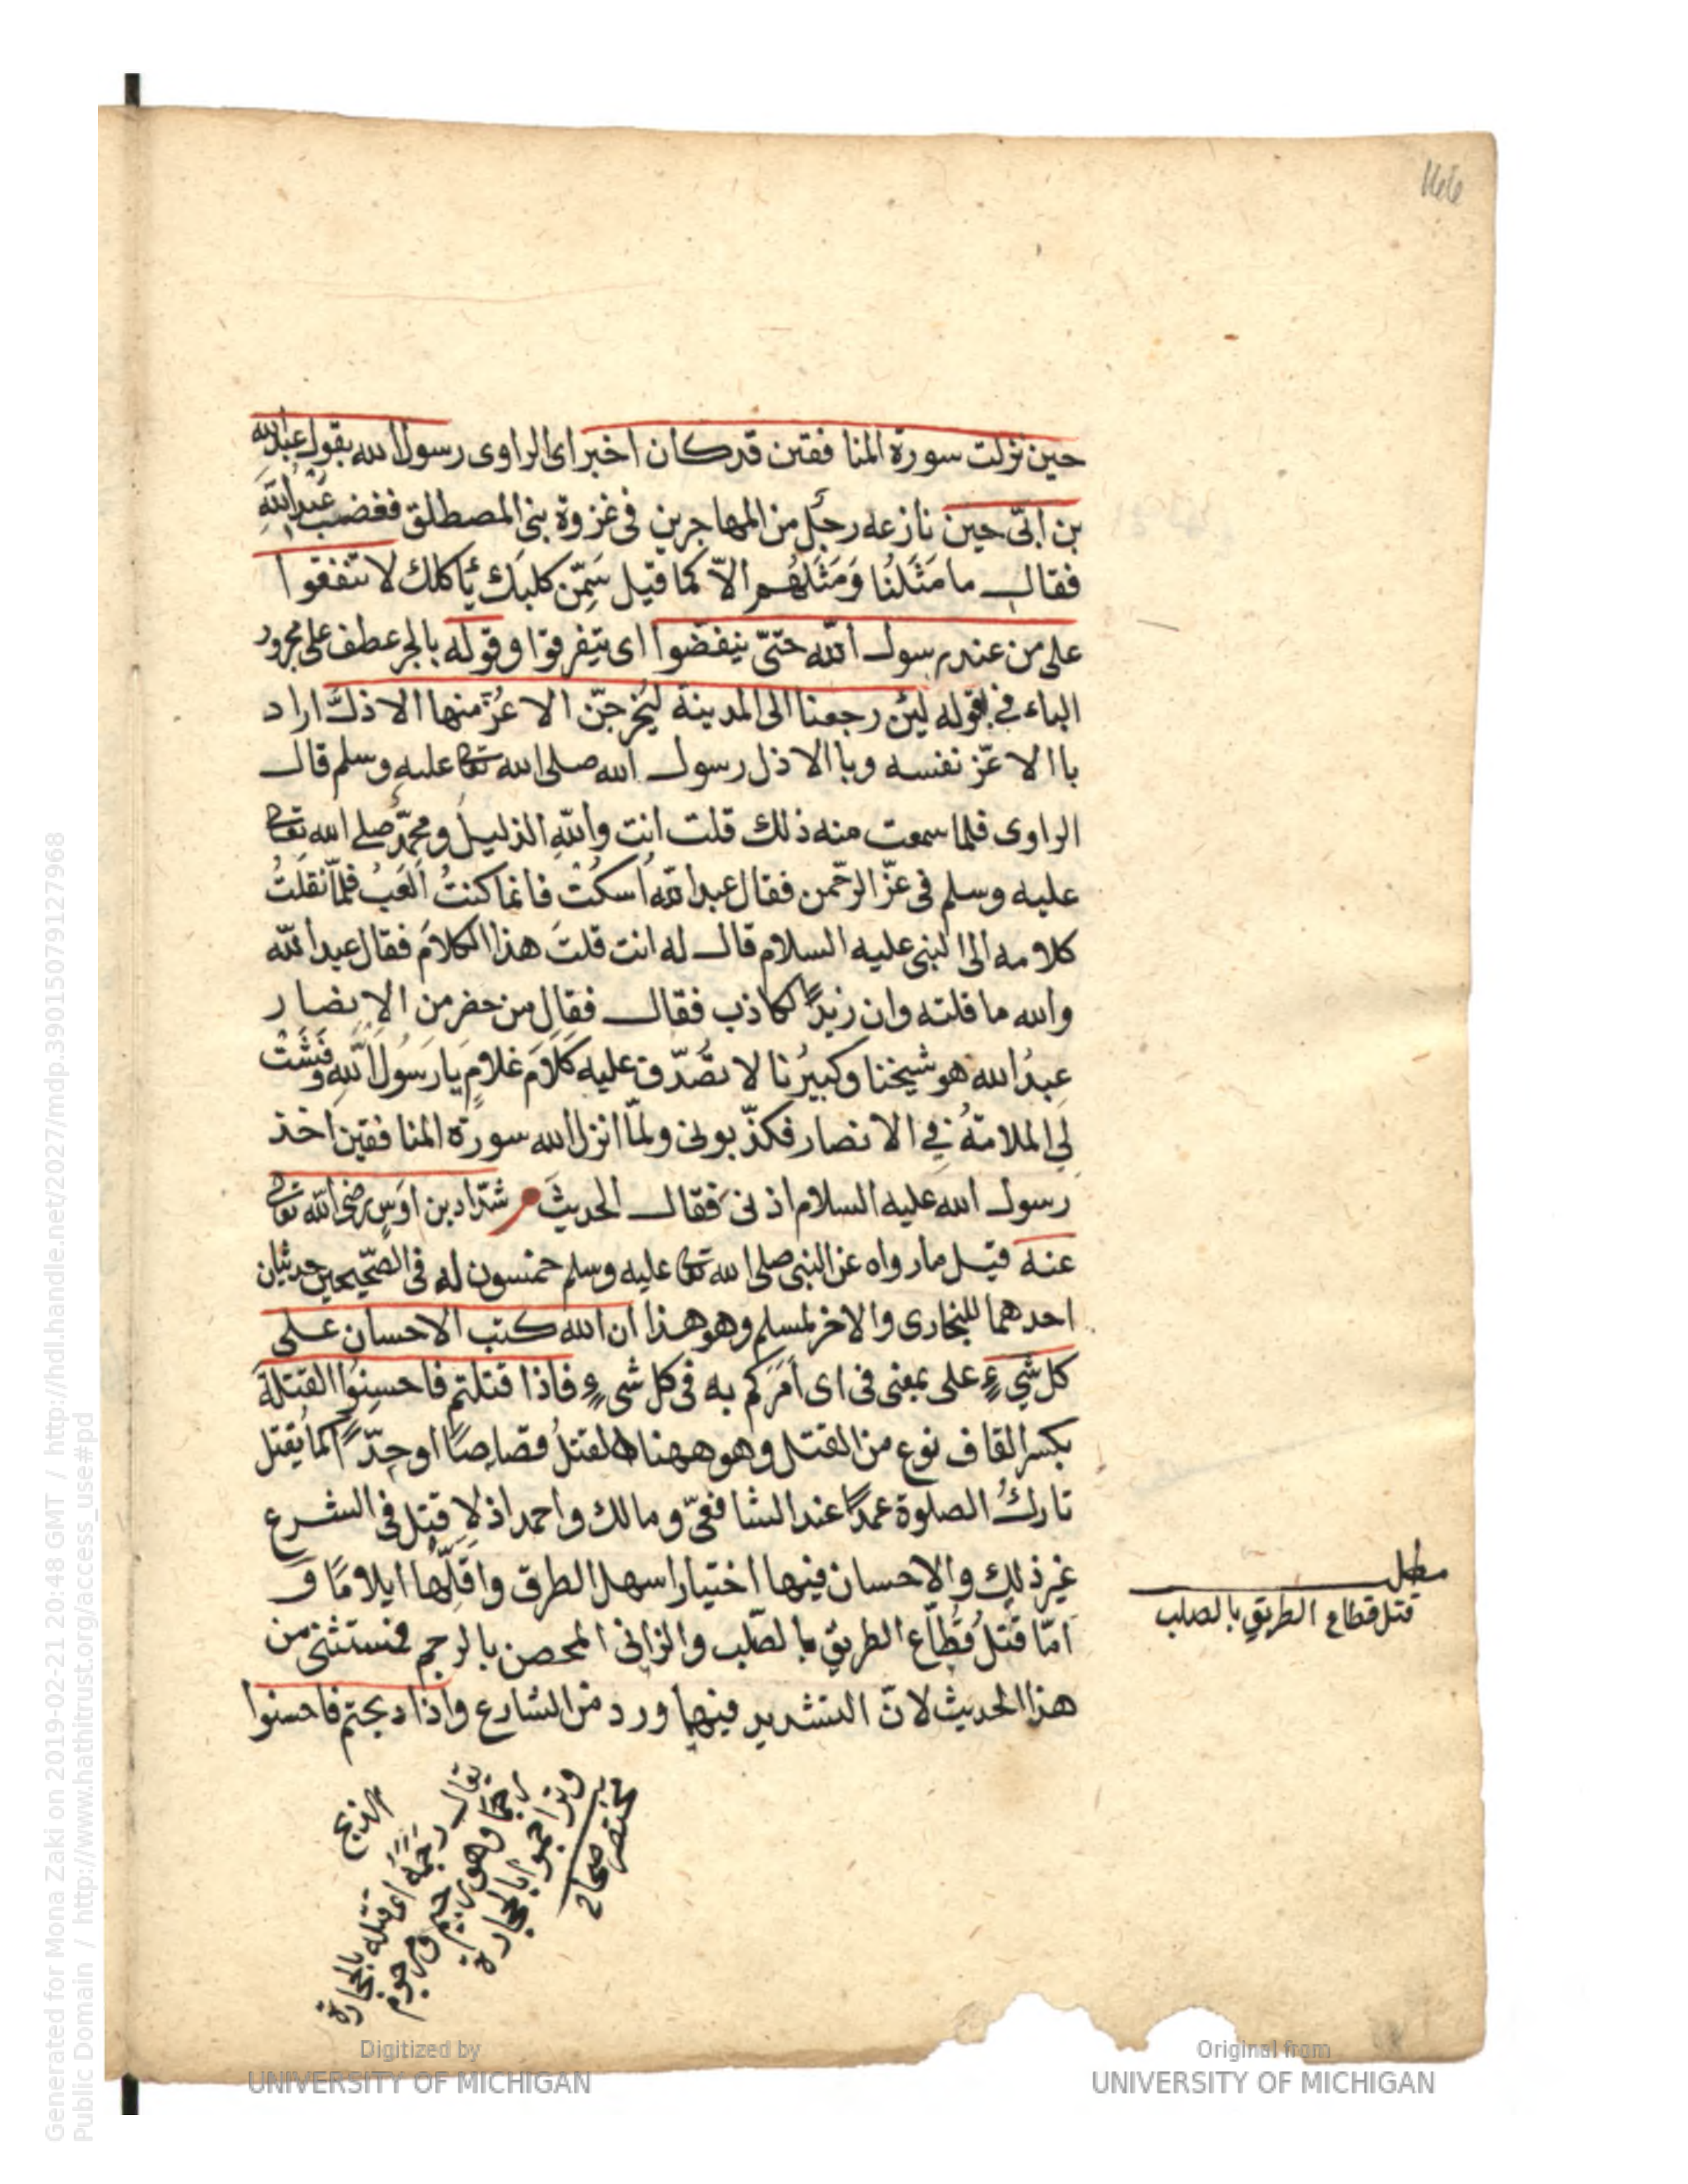 حين نزلت سورة المنافقين قد كان اخبر اى الراوى رسول الله بقول عبد الله
بن ابىّ حين نازعه رجل من المهاجرين فى غزوة بنى المصطلق فغضب عَبْدُ اللهِ
فقال ما مَثَلُنَا وَمَثَلُهُم الاّ كما قيل سَمِّن كلبَك يأكلك لا تنفقوا
على من عند رسول الله حتّى ينفضّوا اى يتفرقوا وقوله بالجر عطف على مجرور
الباء فى بقوله لئن رجعنا الى المدينة ليُخرجنّ الاعزّ منها الاذلّ اراد
باالاعزّ نفسه وباالاذل رسول الله صلى الله تعا عليه وسلم قال
الراوى فلما سمعت منه ذلك قلت انت والله الذليل ومحمّدٌ صلى الله تعا
عليه وسلم فى عزّ الرحمن فقال عبد الله اُسكُتْ فانما كنتُ اَلعَبُ فلمّا نقلتُ
كلامه الى النبى عليه السلام قال له انت قلتَ هذا الكلامَ فقال عبد الله
والله ما قلته وان زيدًا لكاذب فقال فقال من حضر من الانصار
عبدُ الله هو شيخنا وكبيرُنا لا تصدّق عليه كلامَ غلامٍ يا رسولَ اللهِ وفَشَتْ
لِى الملامةُ فى الانصار فكذّبونى ولمّا انزل الله سورة المنافقين اخذ
رسول الله عليه السلام اذنى فقال الحديثَ م شدّاد بن اَوسٍ رضى الله تعا
عنه قيل ما رواه عن النبى صلى الله تعا عليه وسلم خمسون له فى الصّحيحين حديثان
احدهما للبخارى والاخر لمسلم وهو هذا ان الله كتب الاحسان على
كل شىءٍ على بمعنى فى اى اَمَرَكم به فى كل شىءٍ فاذا قتلتم فاحسِنُوا القتلةَ
بكسر القاف نوع من القتل وهو ههنا القتلُ قصاصًا او حدّاً كما يُقتل
تاركُ الصلوة عمدًا عند الشافعىّ ومالك واحمد اذ لا قتل فى الشرع
غير ذلك والاحسان فيها اختيار اسهل الطرق واقلّها ايلامًا و
امّا قَتلُ قُطّاع الطريق بالصّلب والزانى المحصن بالرجم فمستثنى من
هذا الحديث لانّ التشديد فيها ورد من الشارع واذا ذبحتم فاحسنوا
مطلب
قتل قطاع الطريق بالصلب
الذبح
يقال رجمَه اى قتله بالحجارة
رجمًا وهو رجيم ومرجوم
وتراجموا بالحجارة
مختصر صحاح